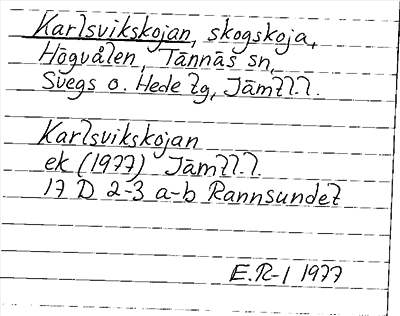 Karlsvikskojan, skogskoja,
Högvålen, Tännäs sn,
Svegs o. Hede tg, Jämtl.l.
Karlsvikskojan
ek (1977) Jämtl.l.
17 D 2-3 a-b Rannsundet
E.R-l 1977